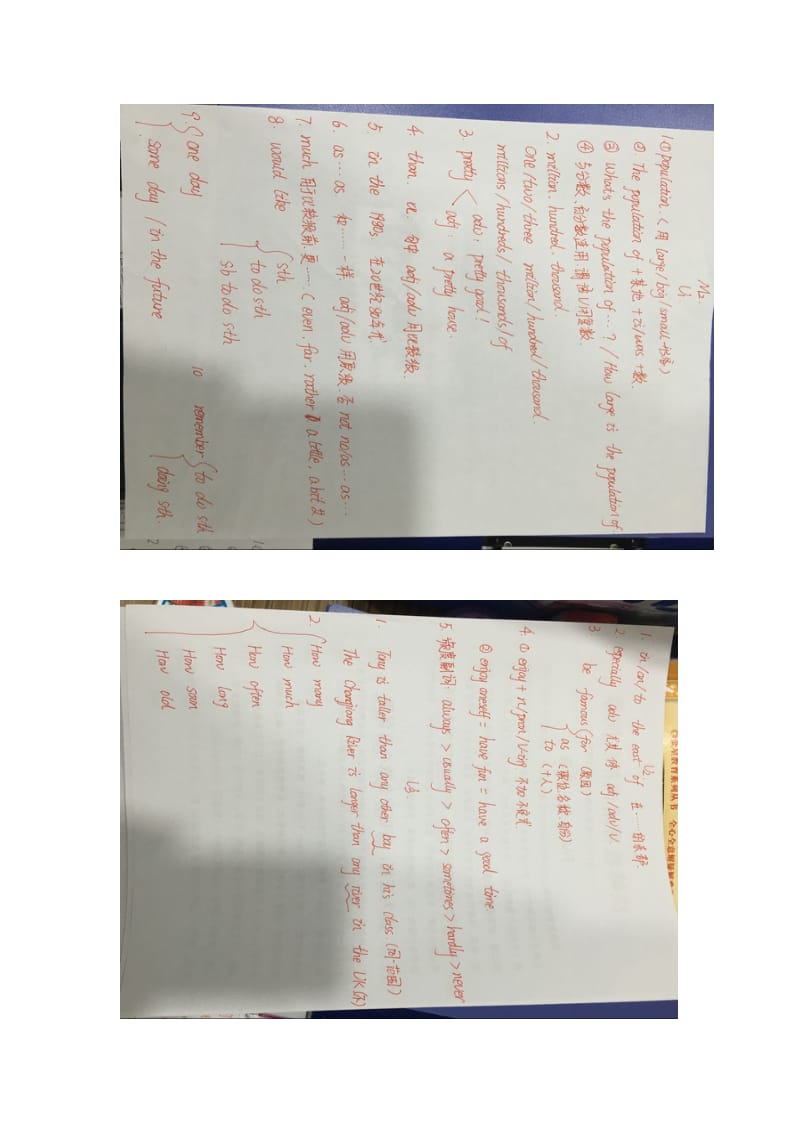 M2
U1
1 ① population. (用 large/big/small 形容)
② The population of + 某地 + is/was + 数.
③ What's the population of ... ? / How large is the population of
④ 与分数、百分数连用 谓语 V 用复数.
2. million. hundred. thousand.
one/two/three million/hundred/thousand.
millions/hundreds/thousands/of
3 pretty < adv: pretty good!
adj: a pretty house.
4. than. 比. 句中 adj/adv 用比较级.
5. in the 1980s. 在20世纪80年代
6. as ... as. 和 ...... 一样. adj/adv 用原级. 否 not as ... as ...
7. much 用于比较级前. 更 .... (even. far. rather a little, a bit 也)
8. would like { sth
to do sth
sb to do sth
9. { one day
some day / in the future
10 remember { to do sth
doing sth.
U2
1. in/on/to the east of 在 .... 的东部.
2. especially adv 尤其 修 adj/adv/V.
3 be famous { for (原因)
as (职位名称 身份)
to (+人)
4. ① enjoy + n/pron/V-ing 不加不定式
② enjoy oneself = have fun = have a good time.
5. 频度副词: always > usually > often > sometimes > hardly > never
U3
1. Tony is taller than any other boy in his class (同一范围)
The Changjiang River is longer than any river in the UK (不)
2. { How many
How much
How often
How long
How soon
How old